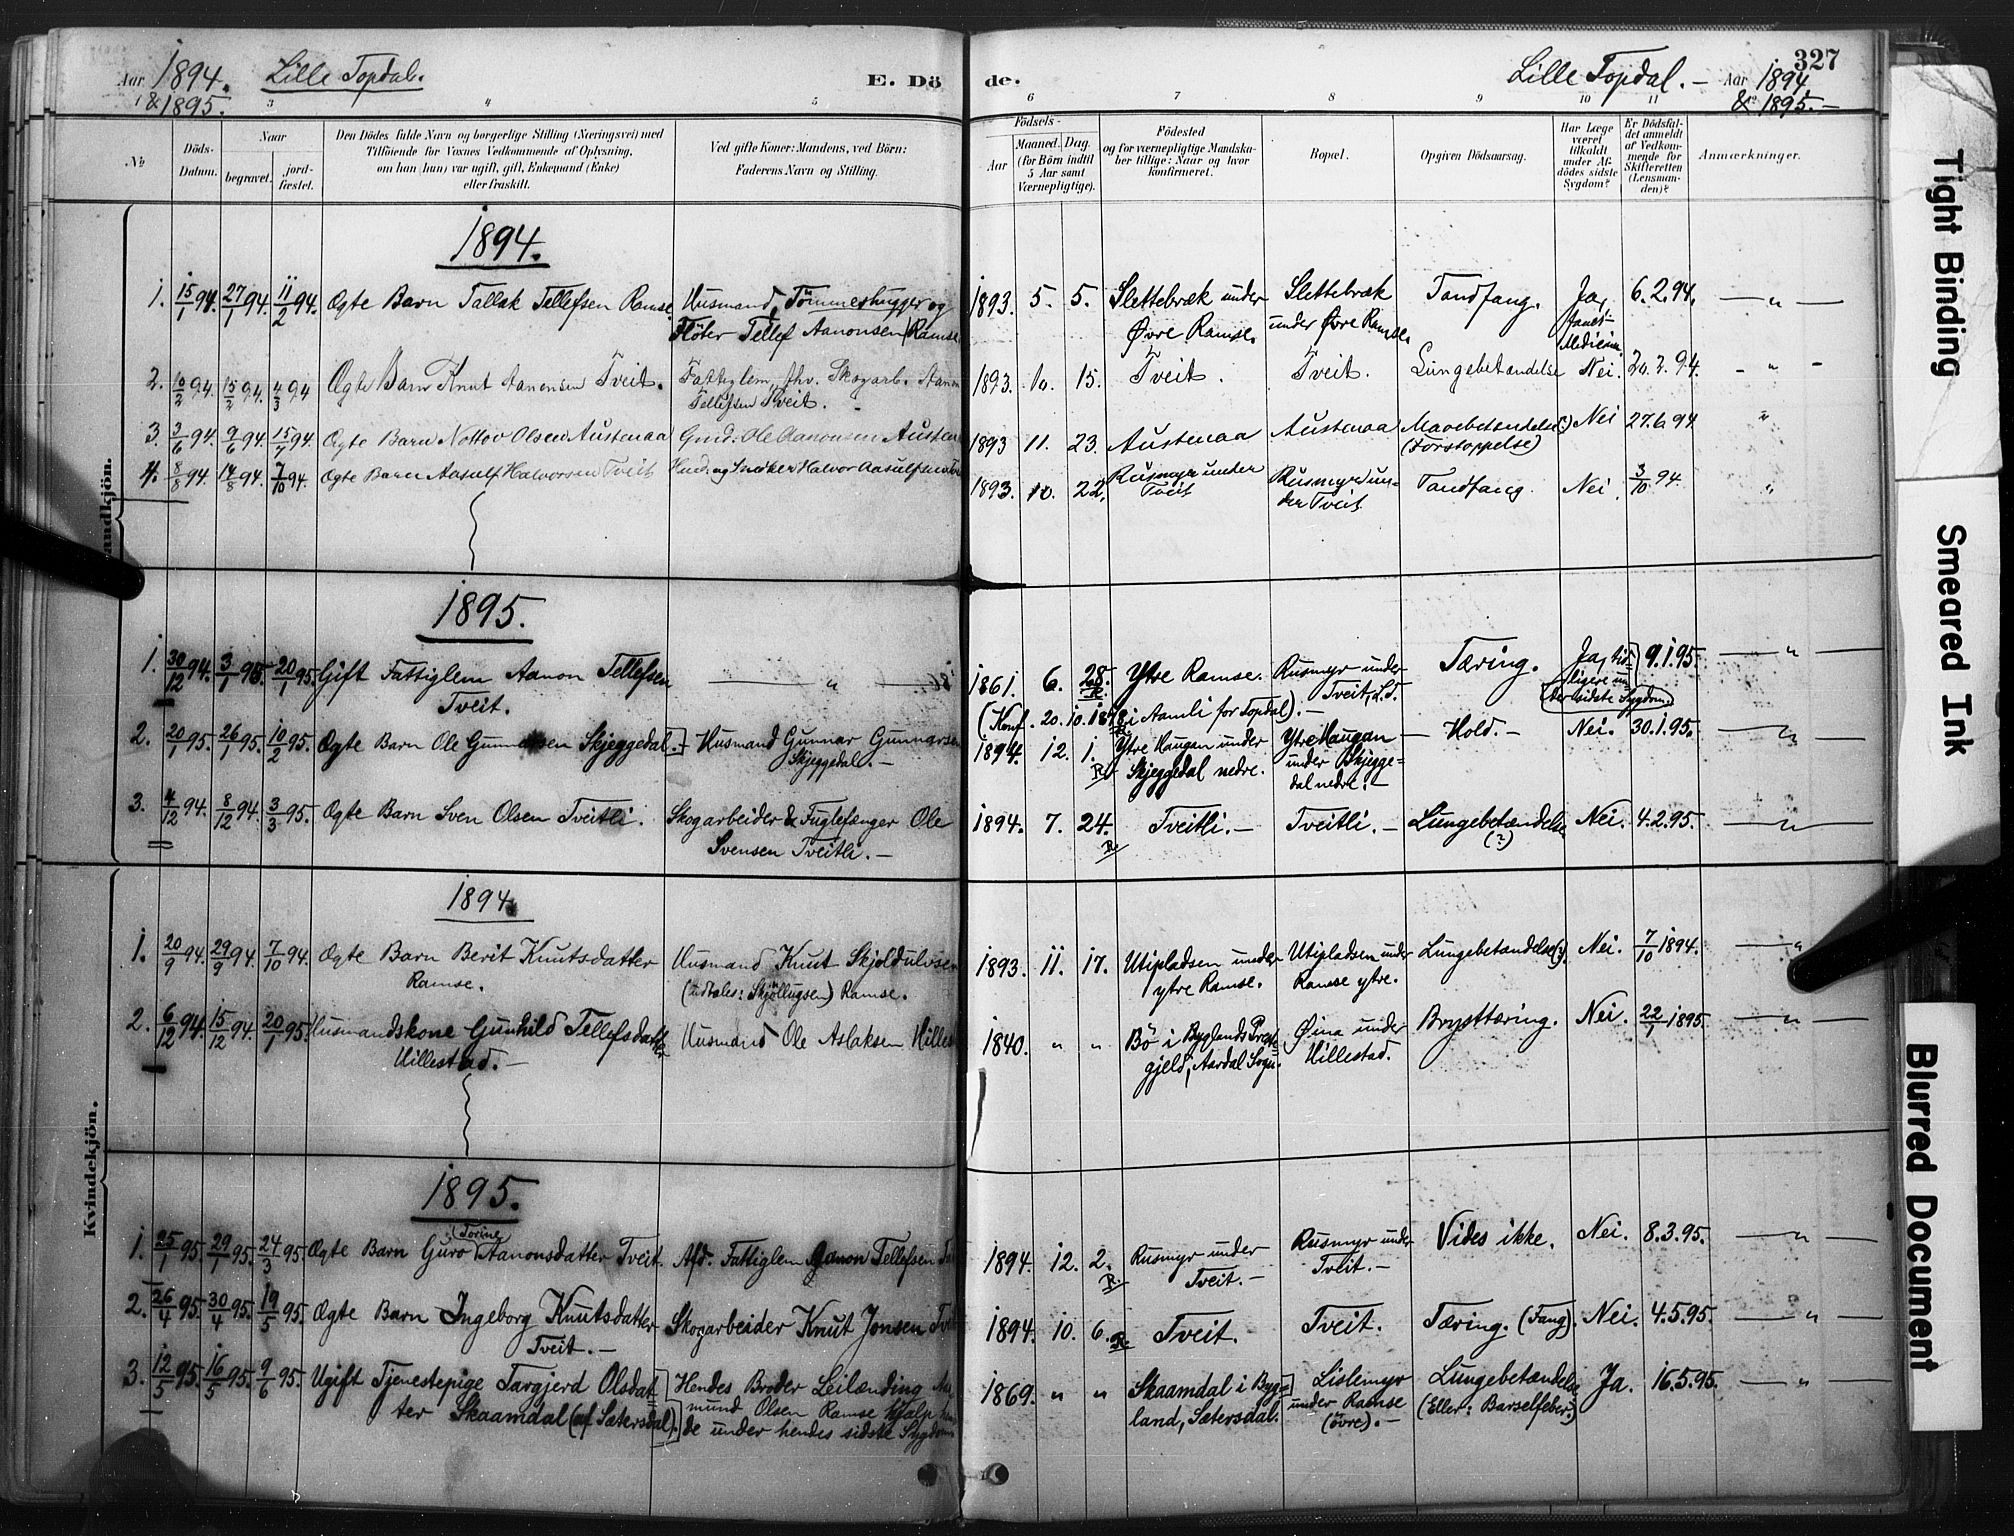 Aar 1894. Lille Topdal. E. Dö
& 1895.
de. Lille Topdal. — Aar 1894 327
& 1895. —
3 4 5
6 7 8 9 10 11
No
Döds-
Datum.
Naar
begravet.
jord-
fæstet.
Den Dödes fulde Navn og borgerlige Stilling (Næringsvei) med
Tilföiende for Voxnes Vedkommende af Oplysning,
om han (hun) var ugift, gift, Enkemand (Enke)
eller fraskilt.
Ved gifte Koner: Mandens, ved Börn:
Faderens Navn og Stilling.
Födsels-
Aar
Maaned. Dag.
(for Börn indtil
5 Aar samt
Værnepligtige).
Födested
og for værnepligtige Mandska-
ber tillige: Naar og hvor
konfirmeret.
Bopæl.
Opgiven Dödsaarsag.
Har Læge
været
tilkaldt
under Af-
dödes sidste
Sygdom?
Er Dödsfal-
det anmeldt
af Vedkom-
mende for
Skifteretten
(Lensman-
den)?
Anmærkninger.
1894.
1. 15/1 94. 27/1 94. 11/2 94. Ægte Barn Tallak Tellefsen Ramse. Husmand, Tömmerhugger og 1893. 5. 5. Slettebræk under Slettebræk Tandfang. Ja, 6.2.94. — „ —
Fløter Tellef Aanonsen Ramse Øvre Ramse. under Øvre Ramse. Medicin.
2. 10/2 94. 15/2 94. 4/3 94 Ægte Barn Knut Aanonsen Tveit. Fattiglem, fhv. Skogarb. Aanon 1893. 10. 15. Tveit. Tveit. Lungebetændelse Nei. 20.3.94. - „ -
Tellefsen Tveit.
3. 3/6 94. 9/6 94. 15/7 94. Ægte Barn Nottov Olsen Austenaa Grd: Ole Aanonsen Austen 1893 11. 23. Austenaa Austenaa Mavebetændelse(?) Nei 27.6.94 „
(Forstoppelse)
4. 8/8 94. 14/8 94. 7/10 94. Ægte Barn Aasulf Halvorsen Tveit Husm. og Snedker Halvor Aasulfsen 1893. 10. 22. Rusmyr under Rusmyr un- Tandfang. Nei. 3/10 94. „
Tveit der Tveit
Mandkjön.
1895.
1. 30/12 94. 3/1 95. 20/1 95. Gift Fattiglem Aanon Tellefsen — „ — 1861. 6. 28. Ytre Ramse. Rusmyr under Tæring. Ja, tid- 9.1.95. — „ —
Tveit. R. Tveit, L.T. ligere un-
(Konf. 20.10.1878 i Aamli for Topdal). — der sidste Sygdom.
2. 20/1 95. 26/1 95. 10/2 95. Ægte Barn Ole Gunnarsen Skjeggedal. Husmand Gunnar Gunnarsen 1894. 12. 1. Ytre Haugan under Ytre Haugan — Hold. — Nei. 30.1.95. — „ —
Skjeggedal. — R. Skjeggedal nedre. under Skjegge-
dal nedre. —
3. 4/12 94. 8/12 94. 3/3 95. Ægte Barn Sven Olsen Tveitli. Skogarbeider & Fuglefænger Ole 1894. 7. 24. Tveitli. — Tveitli. — Lungebetændelse Nei. 4.2.95. — „ —
Svensen Tveitli. — R. (?)
1894
1. 20/9 94. 29/9 94. 7/10 94. Ægte Barn Berit Knutsdatter Husmand Knut Skjoldulvsen 1893. 11. 17. Utipladsen under Utipladsen under Lungebetændelse(?). Nei. 7/10 1894. — „
Ramse. (udtales: Skjöllugsen) Ramse. ytre Ramse. Ramse ytre.
2. 6/12 94. 15/12 94. 20/1 95. Husmandskone Gunhild Tellefsdatter Husmand Ole Aslaksen Hilles 1840. „ „ Bö i Byglands Præste- Øina under Brysttæring. Nei. 22/1 1895. — „ —
Hillestad. — gjeld, Aardal Sogn. Hillestad.
Kvindekjön.
1895.
(Torine
1. 25/1 95. 29/1 95. 24/3 95. Ægte Barn Guro Aanonsdatter Tveit. Afd. Fattiglem Aanon Tellefsen 1894. 12. 2. Rusmyr under Rusmyr under Vides ikke. Nei. 8.3.95. — „ —
R. Tveit. — Tveit. —
2. 26/4 95. 30/4 95. 19/5 95. Ægte Barn Ingeborg Knutsdatter Skogarbeider Knut Jonsen 1894. 10. 6. R. Tveit. Tveit. Tæring. (Fang). Nei. 4.5.95. — „ —
Tveit. —
3. 12/5 95. 16/5 95. 9/6 95. Ugift Tjenestepige Targjerd Olsdat- Hendes Broder Leilænding 1869. „ „ Skaamdal i Byg- Lislemyr Lungebetændelse Ja. 16.5.95. — „ —
ter Skaamdal (af Sætersdal). mund Olsen Ramse hjalp hen- land, Sætersdal. under Ramse (Eller: Barselfeber?)
de under hendes sidste Sygdom (övre). —
Tight Binding
Smeared Ink
Blurred Document